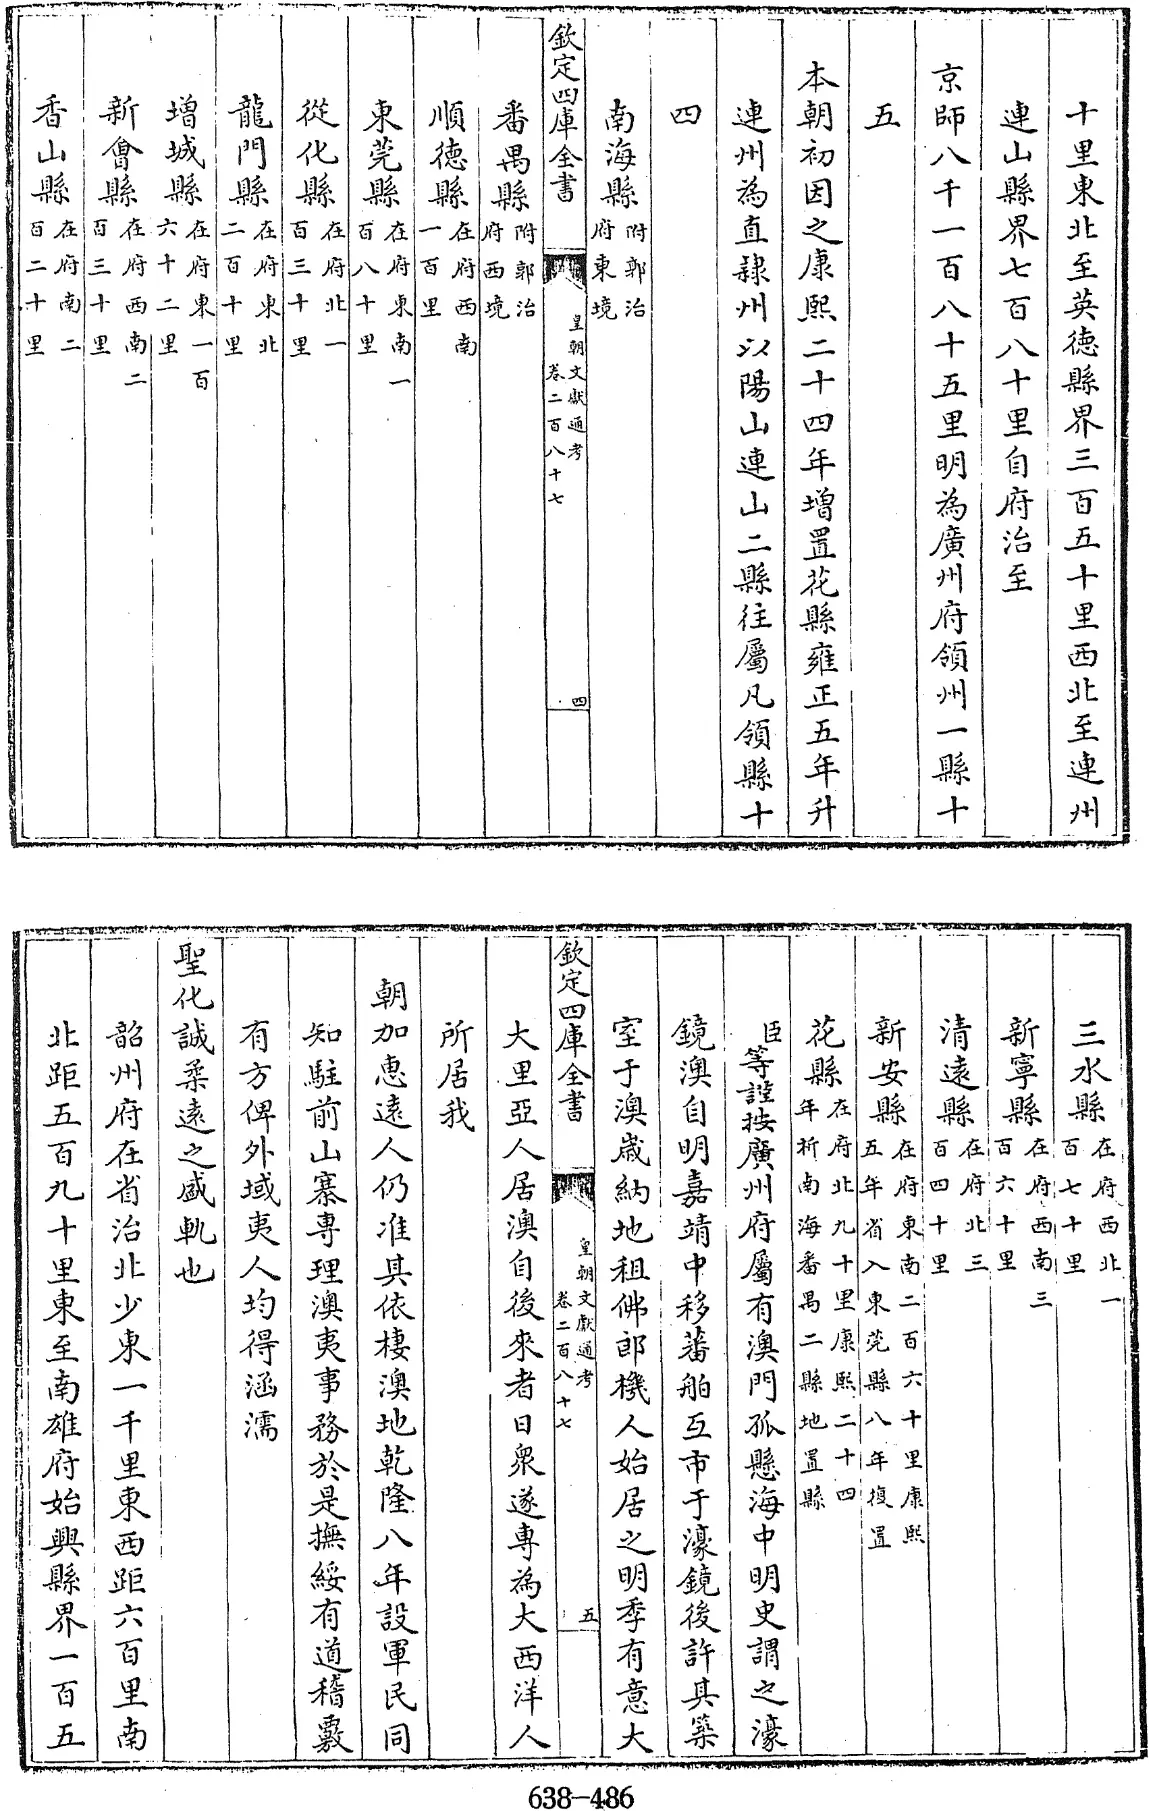 十里東北至英德縣界三百五十里西北至連州
連山縣界七百八十里自府治至
京師八千一百八十五里明為廣州府領州一縣十
五
本朝初因之康熙二十四年增置花縣雍正五年升
連州為直隸州以陽山連山二縣往屬凡領縣十
四
南海縣附郭治府東境
欽定四庫全書
皇朝文獻通考
卷二百八十七
四
番禺縣附郭治府西境
順德縣在府西南一百里
東莞縣在府東南一百八十里
從化縣在府北一百三十里
龍門縣在府東北二百十里
增城縣在府東一百六十二里
新會縣在府西南二百三十里
香山縣在府南二百二十里
三水縣在府西北一百七十里
新寧縣在府西南三百六十里
清遠縣在府北三百四十里
新安縣在府東南二百六十里康熙五年省入東莞縣八年復置
花縣在府北九十里康熙二十四年析南海番禺二縣地置縣
臣等謹按廣州府屬有澳門孤懸海中明史謂之濠
鏡澳自明嘉靖中移蕃舶互市于濠鏡後許其築
室于澳歲納地租佛郎機人始居之明季有意大
欽定四庫全書
皇朝文獻通考
卷二百八十七
五
大里亞人居澳自後來者日衆遂專為大西洋人
所居我
朝加惠遠人仍准其依棲澳地乾隆八年設軍民同
知駐前山寨專理澳夷事務於是撫綏有道稽覈
有方俾外域夷人均得涵濡
聖化誠柔遠之盛軌也
韶州府在省治北少東一千里東西距六百里南
北距五百九十里東至南雄府始興縣界一百五
638-486